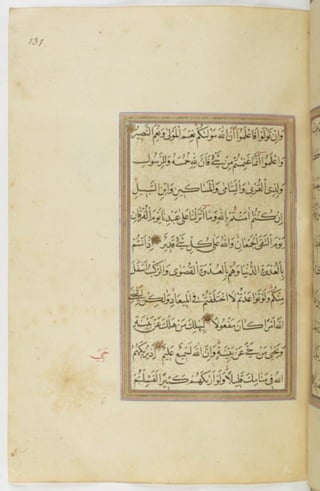 151
وان تولوا فاعلموا ان الله موليكم نعم المولى ونعم النصير
واعلموا انما غنمتم من شئ فان لله خمسه وللرسول
ولذى القربى واليتامى والمساكين وابن السبيل
ان كنتم امنتم بالله وما انزلنا على عبدنا يوم الفرقان
يوم التقى الجمعان والله على كل شئ قدير اذ انتم
بالعدوة الدنيا وهم بالعدوة القصوى والركب اسفل
منكم ولو تواعدتم لاختلفتم فى الميعاد ولكن ليقضى
الله امرا كان مفعولا ليهلك من هلك عن بينة
ويحيى من حى عن بينة وان الله لسميع عليم اذ يريكهم
الله فى منامك قليلا ولو اريكهم كثيرا لفشلتم